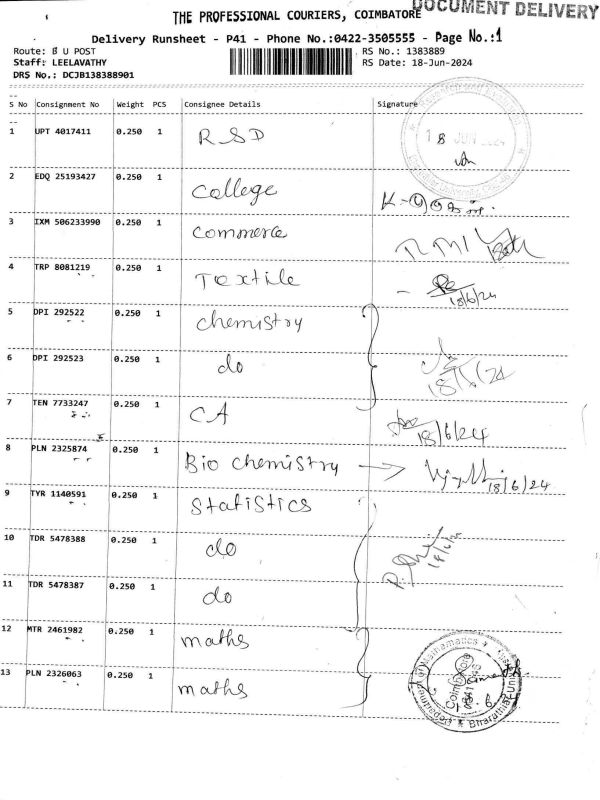 DOCUMENT DELIVERY
THE PROFESSIONAL COURIERS, COIMBATORE
Delivery Runsheet - P41 - Phone No.:0422-3505555 - Page No.:1
Route: B U POST RS No.: 1383889
Staff: LEELAVATHY RS Date: 18-Jun-2024
DRS No.: DCJB138388901
S No Consignment No Weight PCS Consignee Details Signature
1 UPT 4017411 0.250 1 RSD
18 JUN
2 EDQ 25193427 0.250 1 College
3 IXM 506233990 0.250 1 Commerce
4 TRP 8081219 0.250 1 Textile
18/6/24
5 DPI 292522 0.250 1 chemistry
6 DPI 292523 0.250 1 do
18/6/24
7 TEN 7733247 0.250 1 CA
18/6/24
8 PLN 2325874 0.250 1 Bio chemistry
18/6/24
9 TYR 1140591 0.250 1 Statistics
10 TDR 5478388 0.250 1 do
11 TDR 5478387 0.250 1 do
12 MTR 2461982 0.250 1 maths
13 PLN 2326063 0.250 1 maths
Department of Mathematics
Bharathiar